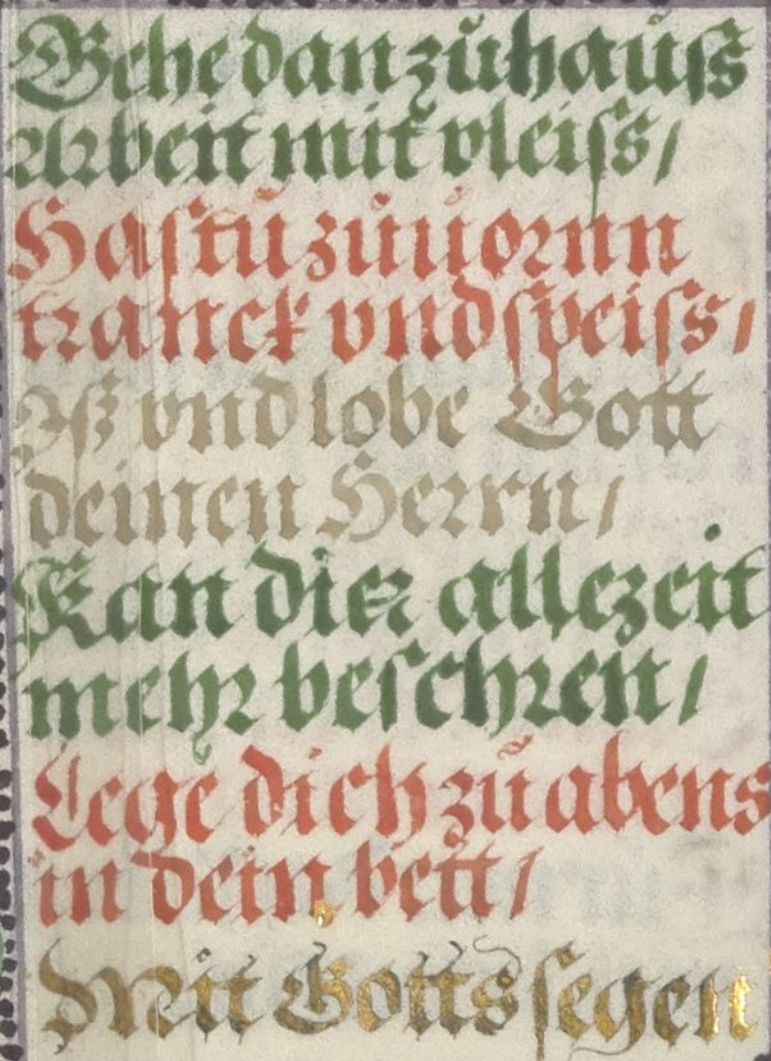 Gehe dan zů hauſs
Arbeit mit vleiſs/
Haſtu zůuornn
tranck vnd ſpeiſs/
Iſz vnd lobe Gott
deinen Herrn/
Kan dier allezeit
mehr beſchren/
Lege dich zů abens
in dein bett/
Mit Gotts ſegen